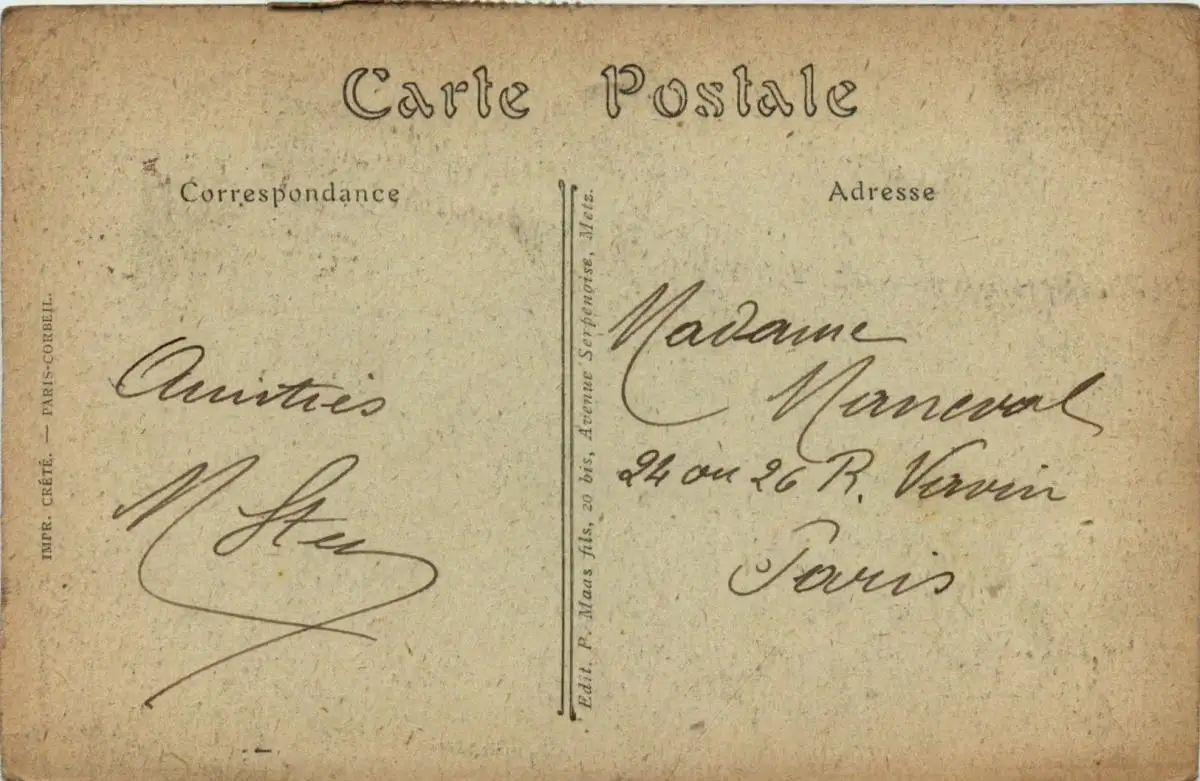 Carte Postale
Correspondance
Adresse
IMPR. CRÉTÉ. — PARIS-CORBEIL.
Edit. P. Maas fils, 20 bis, Avenue Serpenoise, Metz.
Amitiés
M
Madame
Maneval
24 ou 26 R. Vavin
Paris